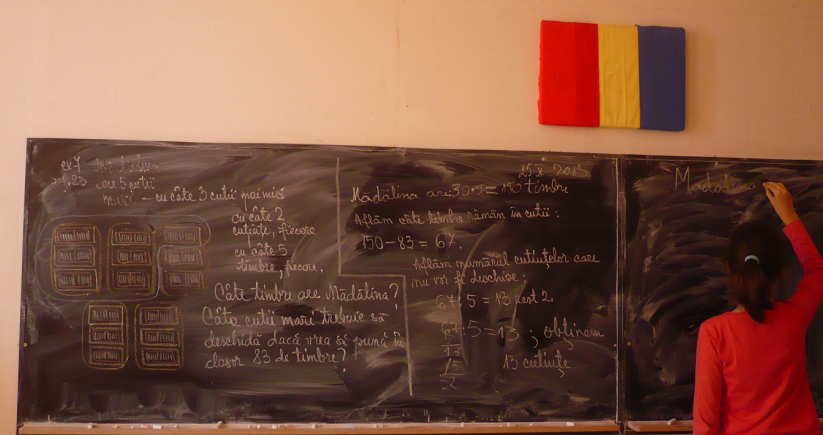 ex 7
are 5 cutii
mari – cu câte 3 cutii mai mici
cu câte 2
cutiuțe, fiecare
cu câte 5
timbre, fiecare.
Câte timbre are Mădălina?
Câte cutii mari trebuie să
deschidă dacă vrea să pună în
clasor 83 de timbre?
25 X 2013
Mădălina are: 30·5 = 150 timbre
Aflăm câte timbre rămân în cutii:
150 – 83 = 67.
Aflăm numărul cutiuțelor care
nu vor fi deschise:
67 : 5 = 13 rest 2
67 : 5 = 13 ; obținem
5
17
15
–2
13 cutiuțe
Mădălina